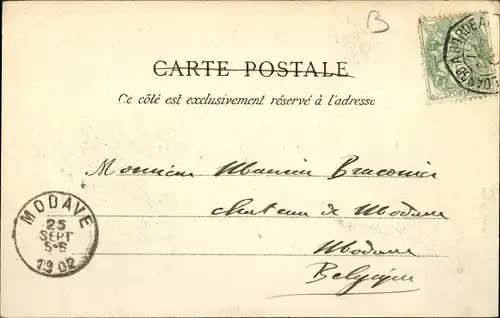 B
CARTE POSTALE
Ce côté est exclusivement réservé à l'adresse
Monsieur Maurice Braconier
chateau de Modave
Modave
Belgique
MODAVE
25
SEPT
5-S
1902